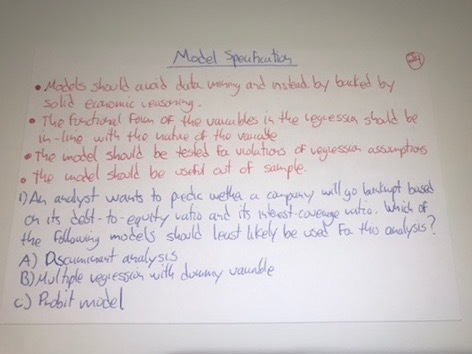 Model Specification
24
• Models should avoid data mining and instead by backed by
solid economic reasoning.
• The functional form of the variables in the regression should be
in-line with the nature of the variable
• The model should be tested for violations of regression assumptions
• The model should be useful out of sample.
1) An analyst wants to predic wether a company will go bankrupt based
on its debt-to-equity ratio and its interest-coverage ratio. Which of
the following models should least likely be used for this analysis?
A) Discriminant analysis
B) Multiple regression with dummy variable
C) Probit model